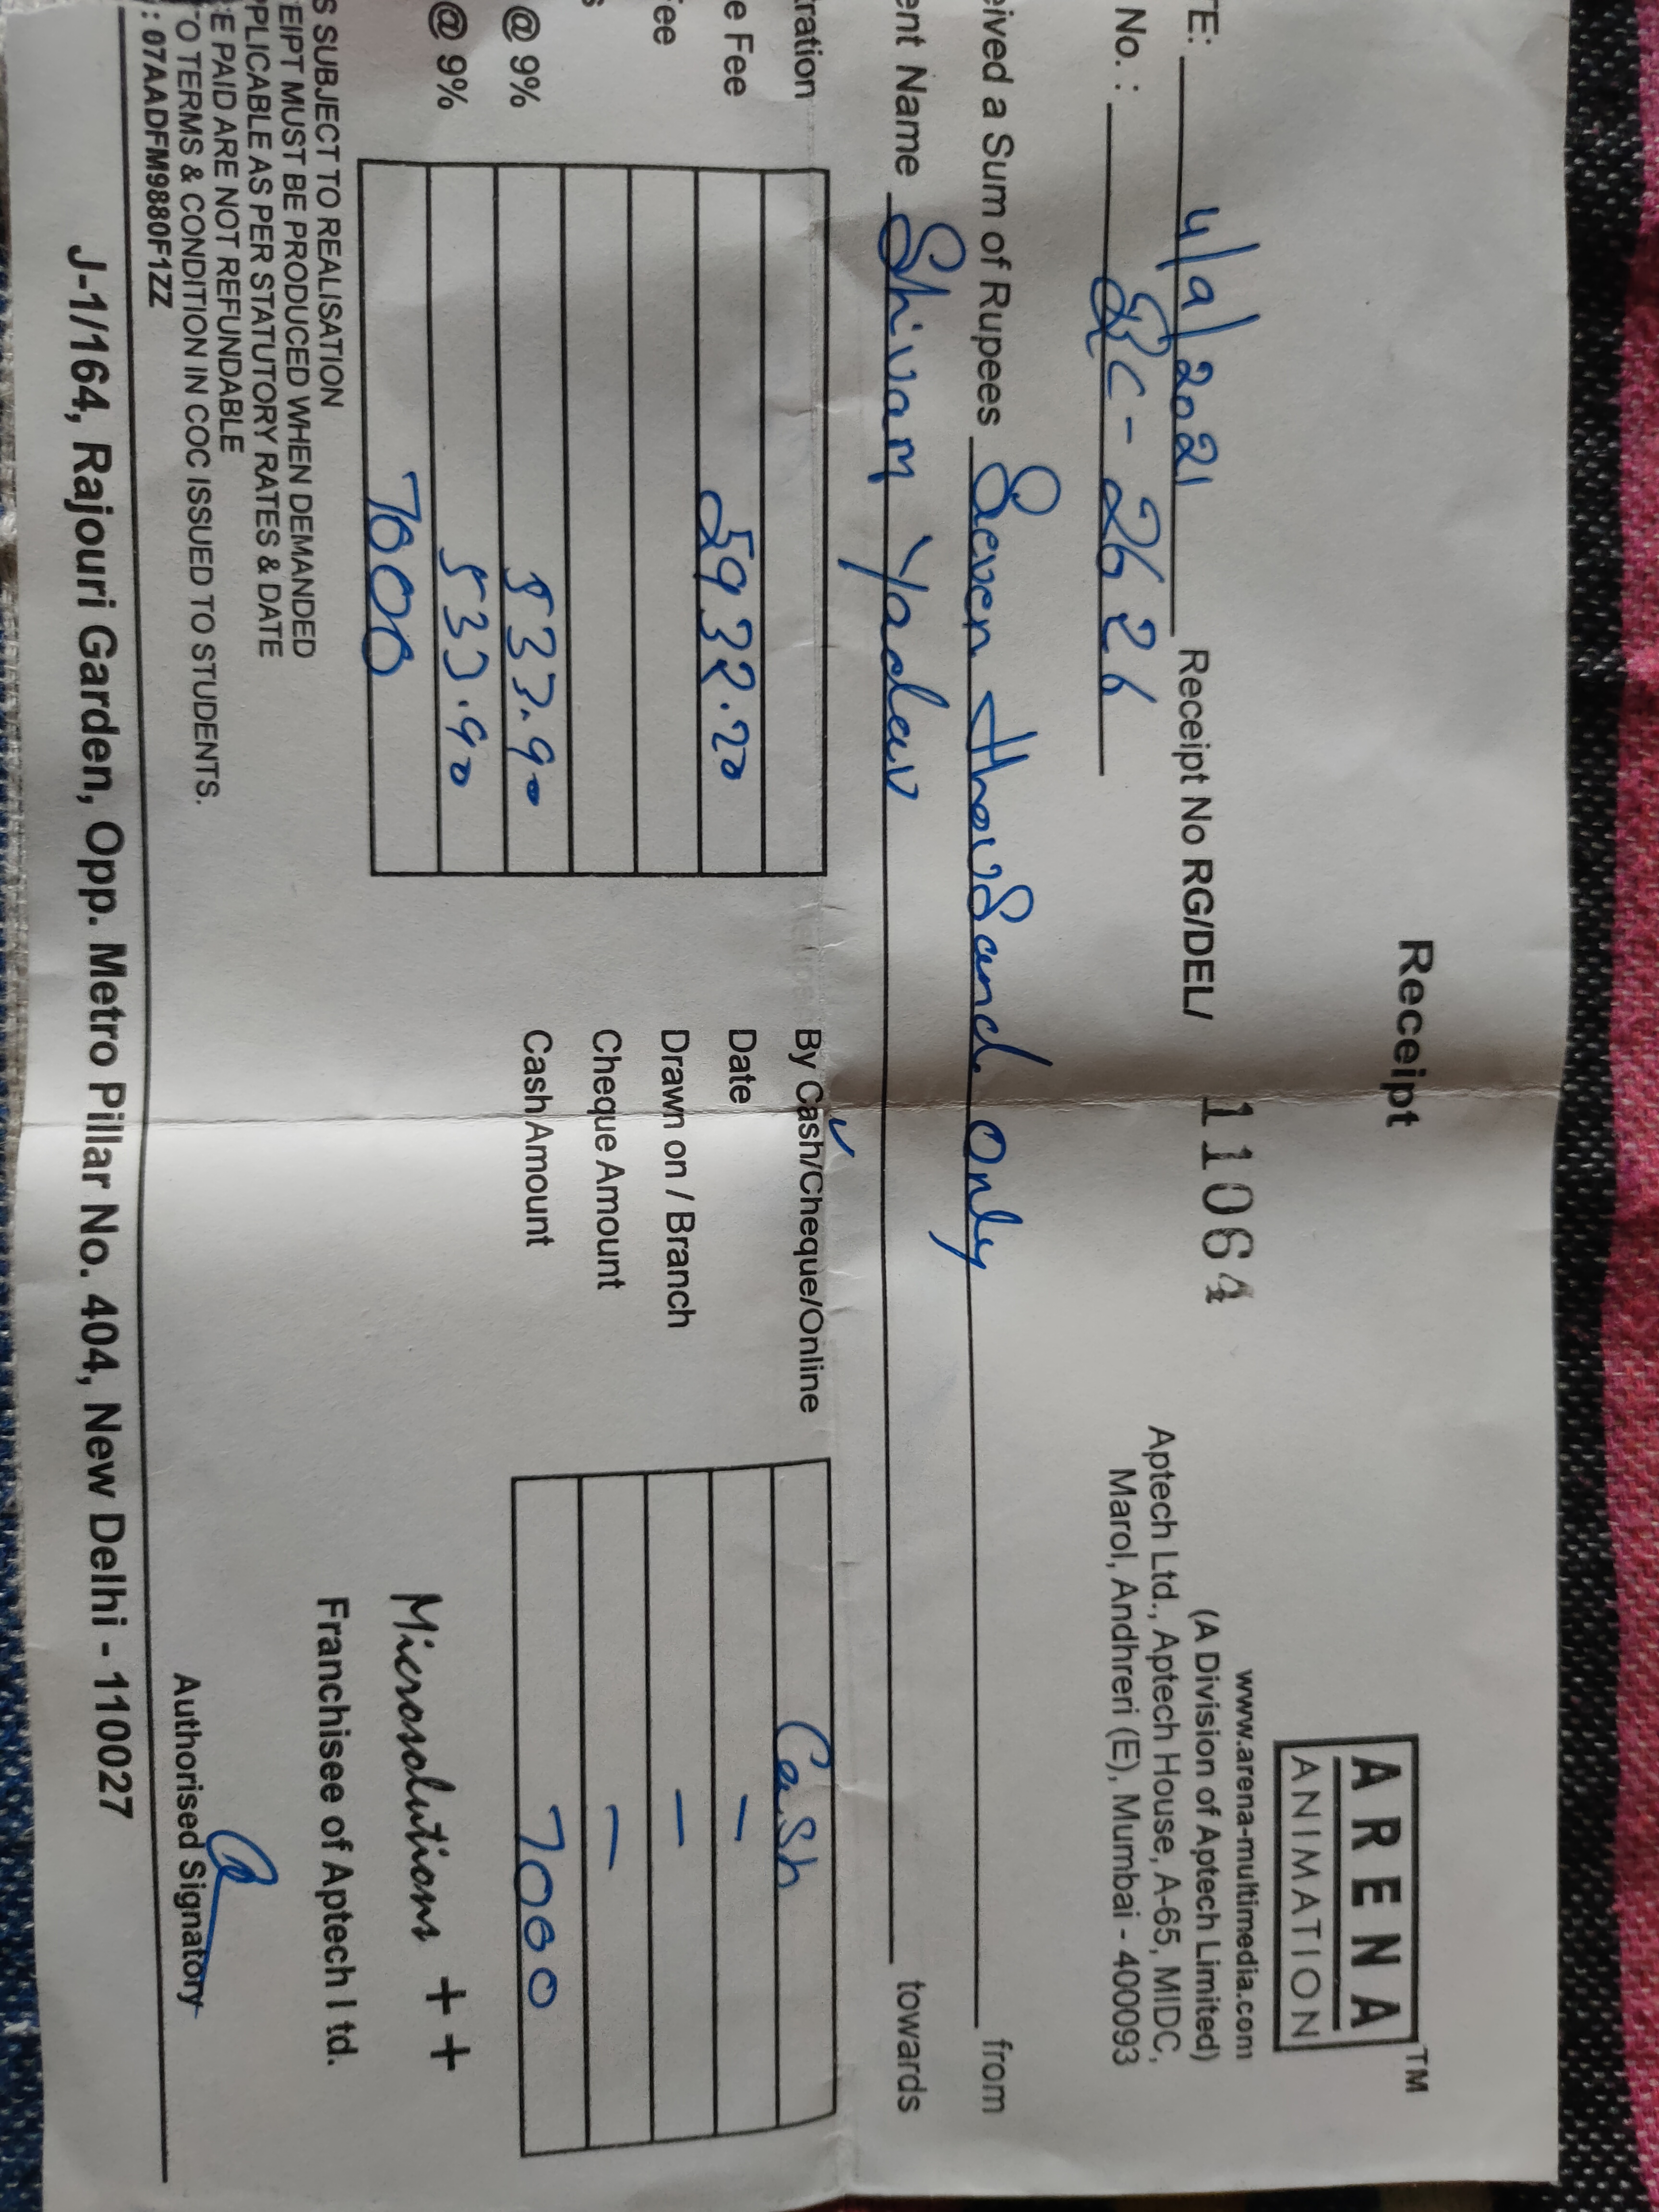 Receipt
ARENA TM
ANIMATION
www.arena-multimedia.com
(A Division of Aptech Limited)
Aptech Ltd., Aptech House, A-65, MIDC,
Marol, Andhreri (E), Mumbai - 400093
TE: 4/9/2021 Receipt No RG/DEL/ 11064
No. : RC - 2626
eived a Sum of Rupees Seven thousand only from
ent Name Shivam Yadav towards
ration
e Fee 5932.20
ee
s
@ 9% 533.90
@ 9% 533.90
7000
By Cash/Cheque/Online Cash
Date –
Drawn on / Branch –
Cheque Amount –
Cash Amount 7000
S SUBJECT TO REALISATION
EIPT MUST BE PRODUCED WHEN DEMANDED
PPLICABLE AS PER STATUTORY RATES & DATE
E PAID ARE NOT REFUNDABLE
TO TERMS & CONDITION IN COC ISSUED TO STUDENTS.
: 07AADFM9880F1ZZ
Microsolutions ++
Franchisee of Aptech Ltd.
Authorised Signatory
J-1/164, Rajouri Garden, Opp. Metro Pillar No. 404, New Delhi - 110027